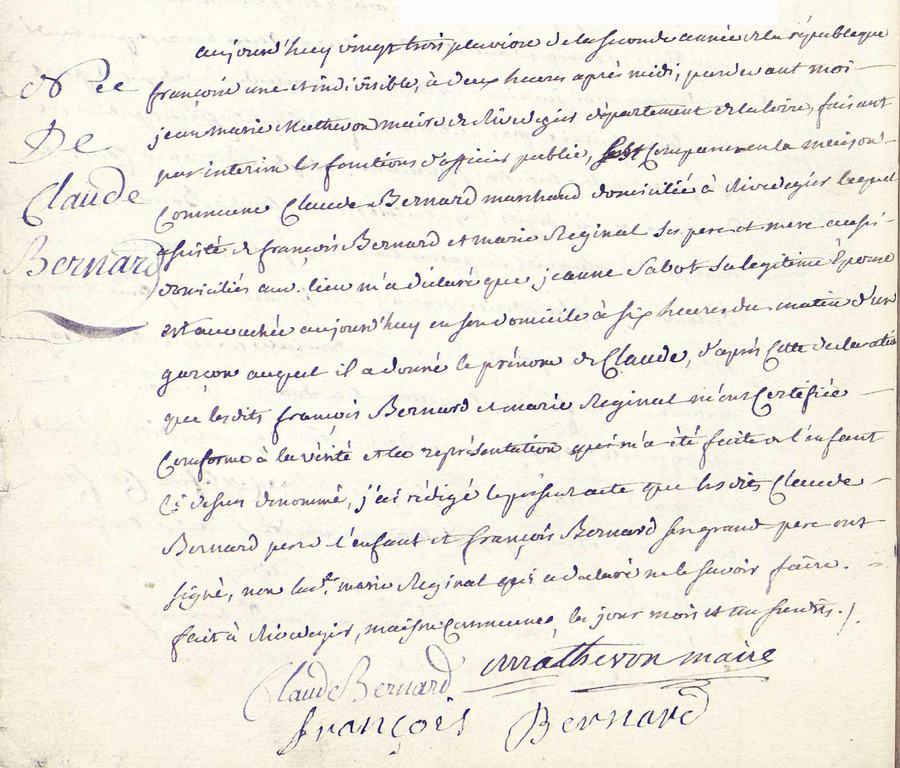 Née
De
Claude
Bernard
aujourd'huy vingt trois pluviose de la seconde année de la république
françoise une et indivisible, à deux heures après midi, pardevant moi
jean marie Mathevon maire de Rivedegier département de la loire, faisant
par interim les fonctions d'officier public, est Comparu en la maison
Commune Claude Bernard marchand domicilié à Rivedegier lequel
assisté de françois Bernard et marie Reginal ses pere et mere aussi
domiciliés aud. lieu m'a déclaré que jeanne Sabot sa legitime Epouse
est accouchée aujourd'huy en son domicile à six heures du matin d'un
garcon auquel il a donné le prénom de Claude, d'après Cette declaration
que lesdits françois Bernard et marie Reginal m'ont Certifiée
Conforme à la vérité et la représentation qui m'a été faite de l'enfant
Ci dessus denommé, j'ai rédigé le présent acte que lesdits Claude
Bernard pere de l'enfant et françois Bernard son grand pere ont
signé, non lad. marie Reginal qui a declaré ne le savoir faire.
fait à Rivedegier, maison Commune, les jour mois et an susdits./.
Claude Bernard Mathevon maire
françois Bernard